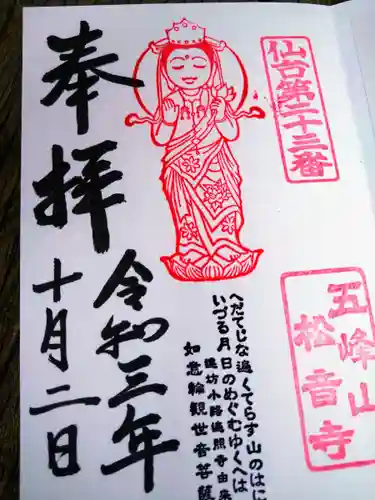 仙台第二十三番
五峰山
松音寺
へだてじな遍くてらす山のはに
いづる月日のめぐむゆくへは
道坊小路遍照寺由来
如意輪観世音菩薩
奉拝
令和三年
十月二日